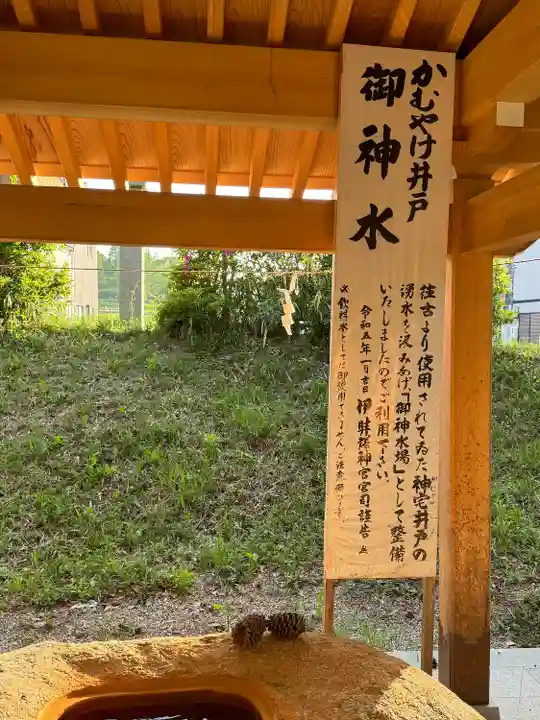 かむやけ井戸
御神水
往古より使用されてゐた神宅井戸の
湧水を汲みあげ「御神水場」として整備
いたしましたのでご利用下さい。
令和五年一月吉日 伊弉諾神宮宮司謹告
※飲料水としては御使用できません、ご注意願ひます。